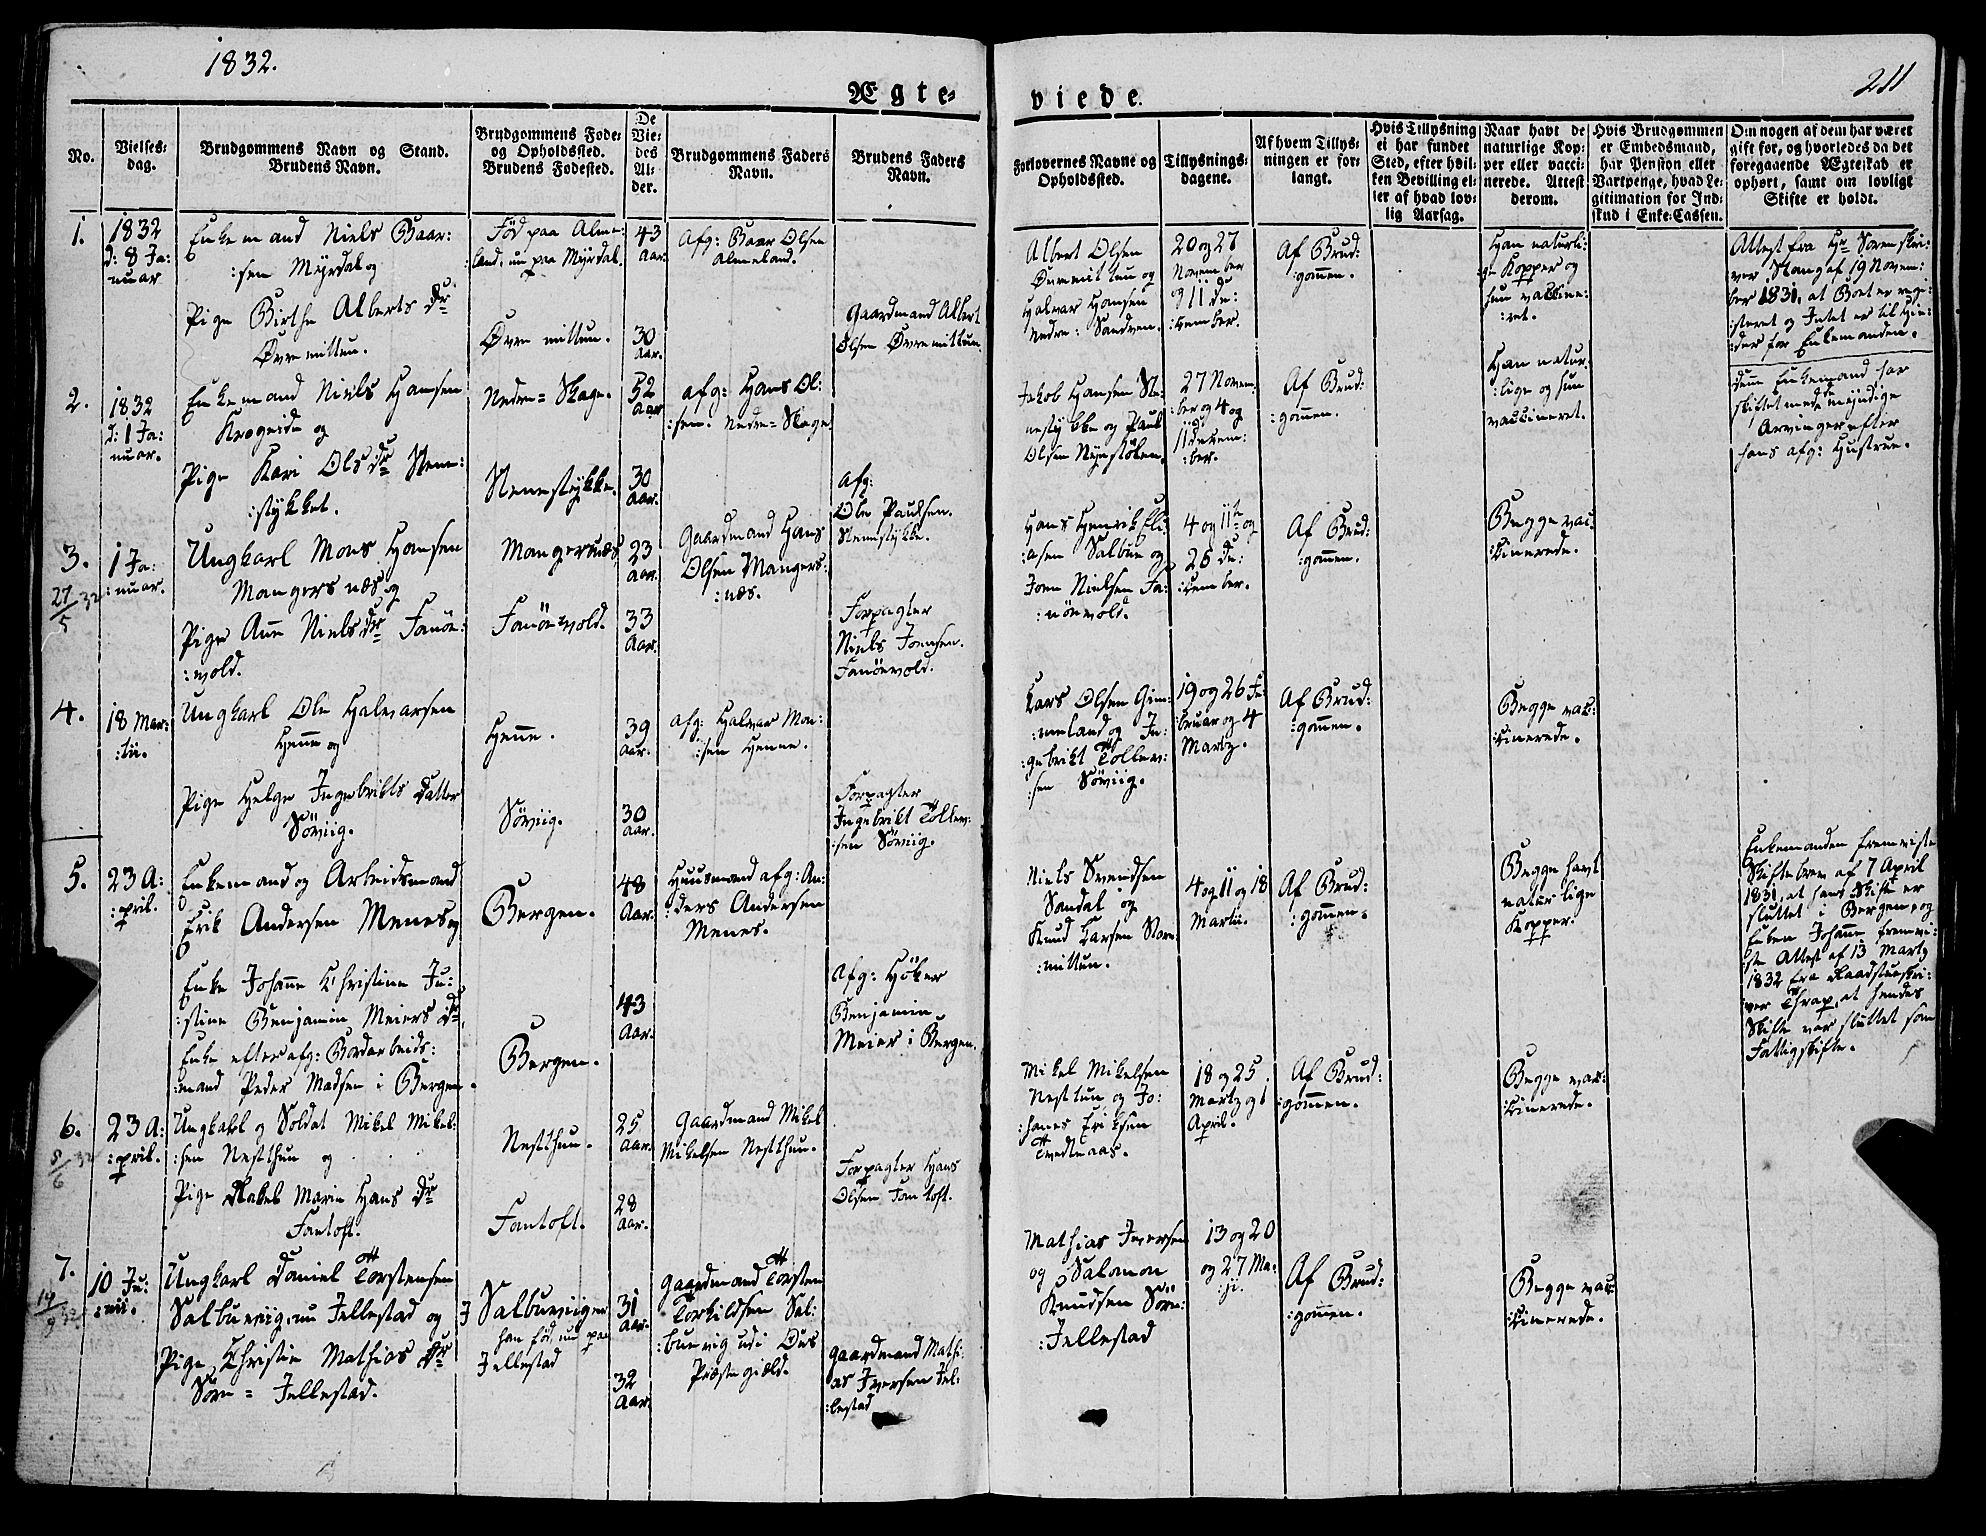 1832.
211
Ægte-
viede.
No.
Vielses-
dag.
Brudgommens Navn og Stand.
Brudens Navn.
Brudgommens Føde-
og Opholdssted.
Brudens Fødested.
De
Vie-
des
Al-
der.
Brudgommens Faders
Navn.
Brudens Faders
Navn.
Forlovernes Navne og
Opholdssted.
Tillysnings-
dagene.
Af hvem Tillys-
ningen er for-
langt.
Hvis Tillysning
ei har fundet
Sted, efter hvil-
ken Bevilling el-
ler af hvad lov-
lig Aarsag.
Naar havt de
naturlige Kop-
per eller vacci-
nerede. Attest
derom.
Hvis Brudgommen
er Embedsmand,
har Pension eller
Vartpenge, hvad Le-
gitimation for Ind-
skud i Enke-Cassen.
Om nogen af dem har været
gift før, og hvorledes da det
foregaaende Ægteskab er
ophørt, samt om lovligt
Skifte er holdt.
1.
1832
d: 8 Ja:
nuar
Enkemand Niels Baar:
:sen Myrdal og
Pige Birthe Alberts Dr
Øvremittun.
Fød paa Alme:
land, nu paa Myrdal.
Øvremittun.
43
Aar.
30
Aar.
Afg: Baar Olsen
Almeland.
Gaardmand Albert
Olsen Øvremittun.
Albert Olsen
Øvremittun og
Halvar Hansen
Nedre: Sandven.
20 og 27
November
og 11 De:
:cember.
Af Brud:
:gommen.
Han naturli:
:ge Kopper og
hun vaccine:
:ret.
Attest fra Hr Sorenskri:
ver Stang af 19 Novem:
ber 1831, at Boet er regi:
:steret og Intet er til Hin:
:der for Enkemanden.
2.
1832
d: 1 Ja:
nuar.
Enkemand Niels Hansen
Krogeide og
Pige Kari Ols Dr Stene:
:stykket.
Nedre= Skage.
Stenestykke.
52
Aar
30
Aar.
afg: Hans Ol:
:sen. Nedre= Skage.
afg:
Ole Paulsen.
Stenestykke.
Jakob Hansen Ste:
nestykke og Paul
Olsen
27 Novem:
:ber og 4 og
11 Decem:
:ber.
Af Brud:
:gommen.
Han natur:
lige og hun
vaccineret.
denne Enkemand har
skiftet med de myndige
Arvinger efter
hans afg: Hustrue.
3.
27/5 32
1 Ja:
:nuar.
Ungkarl Mons Hansen
Mangersnæs og
Pige Anne Niels Dr Fanøe:
:vold.
Mangersnæs
Fanöevold.
23
Aar.
33
Aar.
Gaardmand Hans
Olsen Mangers:
:næs.
Forpagter
Niels Joensen.
Fanöevold.
Hans Henrik Eli:
:asen Salbue og
Joen Nielsen Fa:
:nöevold.
4 og 11te og
26 De:
:cember.
Af Brud:
:gommen.
Begge vac:
:cinerede.
4.
18 Mar:
:tii.
Ungkarl Ole Halvarsen
Henne og
Pige Helge Ingebrikts Datter
Söviig.
Henne.
Söviig.
39
Aar.
30
Aar.
afg: Halvar Mon:
:sen Henne.
Forpagter
Ingebrikt Tollev:
:sen Söviig.
Lars Olsen Gim:
:meland og In:
:gebrikt Tollev:
:sen Söviig.
19 og 26 Fe:
:bruar og 4
Marty.
Af Brud:
:gommen.
Begge vac:
:cinerede.
5.
23 A:
:pril.
Enkemand og Arbeidsmand
Erik Andersen Menes og
Enke Johanne Christine Ju:
:stine Benjamin Meiers Dr,
Enke efter afg: Bordarbeids:
:mand Peder Madsen i Bergen.
Bergen.
Bergen.
48
Aar.
43
Aar.
Huusmand afg: An:
:ders Andersen
Menes.
Afg: Höker
Benjamin
Meier i Bergen.
Niels Svendsen
Sandal og
Knud Larsen Store:
:mittun.
4 og 11 og 18
Martii.
Af Brud:
:gommen.
Begge havt
naturlige
Kopper.
Enkemanden fremviste
Skiftebrev af 7 April
1831, at hans Skifte er
sluttet i Bergen, og
Enken Johanne fremvi:
:ste Attest af 13 Marty
1832 fra Raadstueskri:
ver Thrap, at hendes
Skifte var sluttet som
Fattigskifte.
6.
8/6 32
23 A:
:pril.
Ungkarl og Soldat Mikel Mikel:
:sen Nestthun og
Pige Rakel Marie Hans Dr
Fantoft.
Nestthun.
Fantoft.
25
Aar.
28
Aar.
Gaardmand Mikel
Mikelsen Nestthun.
Forpagter Hans
Olsen Fantoft.
Mikel Mikelsen
Nesttun og Jo:
:hanes Eriksen
Tvedteaas.
18 og 25
Marty og 1
April.
Af Brud:
:gommen.
Begge vac:
:cinerede.
7.
14/9 32
10 Ju:
:nii.
Ungkarl Daniel Torstensen
Salbueviig, nu Jellestad og
Pige, Christie Mathias Dr
Søre= Jellestad.
I Salbueviig er
han fød, nu paa
Jellestad
31
Aar.
32
Aar.
Gaardmand Torsten
Torkildsen Sal:
:buevig udi Ous
Præstegield.
Gaardmand Mathi:
:as Iversen Jel:
:lestad
Mathias Iversen
og Salomon
Knudsen Söre:
:Jellestad
13 og 20
og 27 Ma:
:ji.
Af Brud:
:gommen.
Begge vac:
:cinerede.